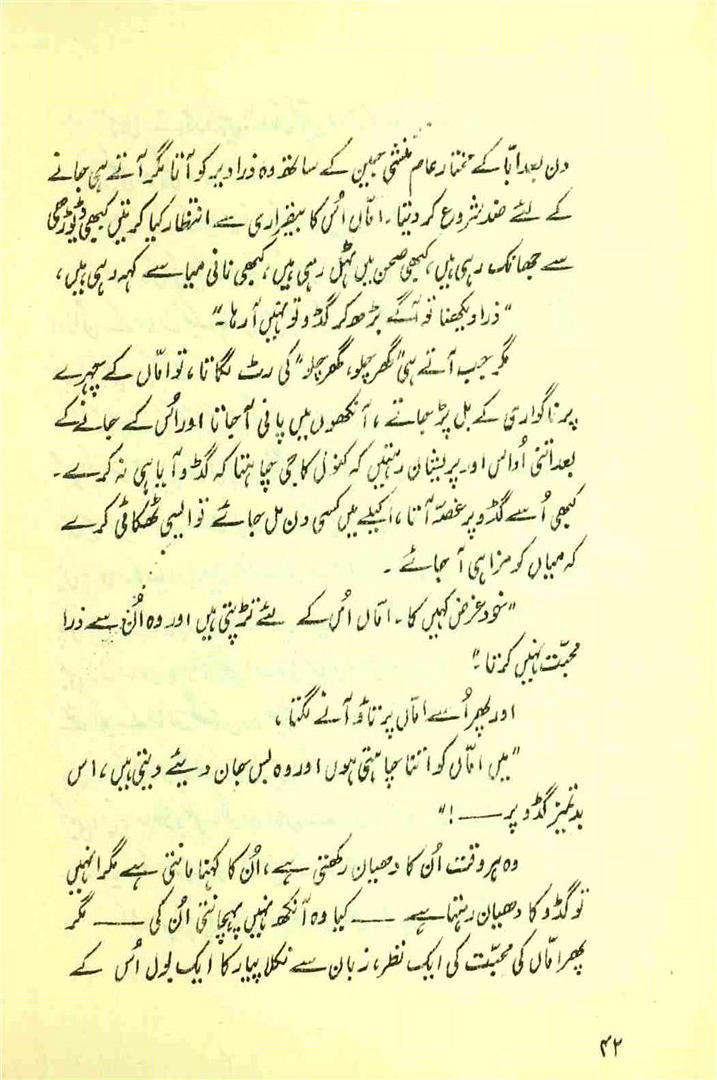 دن بعد ابّا کے مختار عام منشی جبین کے ساتھ وہ ذرا دیر کو آتا مگر آتے ہی جانے
کے لئے ضد شروع کر دیتا۔ امّاں اُس کا بیقراری سے انتظار کیا کرتیں کبھی ڈیوڑھی
سے جھانک رہی ہیں، کبھی صحن میں ٹہل رہی ہیں، کبھی نانی میا سے کہہ رہی ہیں،
"ذرا دیکھنا تو آگے بڑھ کر گڈو تو نہیں آ رہا۔"
مگر جب آتے ہی "گھر چلو، گھر چلو" کی رٹ لگاتا، تو امّاں کے چہرے
پر ناگواری کے بل پڑ جاتے، آنکھوں میں پانی آ جاتا اور اُس کے جانے کے
بعد اتنی اُداس اور پریشان رہتیں کہ کنولی کا جی چاہتا کہ گڈو آیا ہی نہ کرے۔
کبھی اُسے گڈو پر غصّہ آتا، اکیلے میں کسی دن مل جائے تو ایسی ٹھکائی کرے
کہ میاں کو مزا ہی آ جائے۔
"خود غرض کہیں کا۔ امّاں اُس کے لئے تڑپتی ہیں اور وہ اُن سے ذرا
محبّت نہیں کرتا۔"
اور پھر اُسے امّاں پر تاؤ آنے لگتا،
"میں امّاں کو اتنا چاہتی ہوں اور وہ بس جان دیئے دیتی ہیں، اس
بدتمیز گڈو پر ——!"
وہ ہر وقت اُن کا دھیان رکھتی ہے، اُن کا کہنا مانتی ہے مگر انہیں
تو گڈو کا دھیان رہتا ہے —— کیا وہ آنکھ نہیں پہچانتی اُن کی —— مگر
پھر امّاں کی محبّت کی ایک نظر، زبان سے نکلا پیار کا ایک بول اُس کے
۴۲